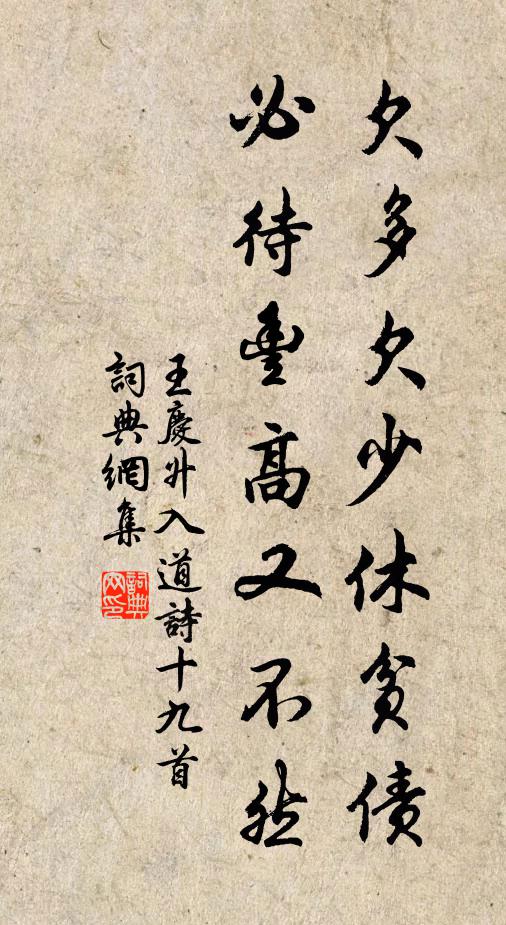 欠多欠少休貧債
必待豊高又不然
王慶升入道詩十九首
詞典網集
詞典網印